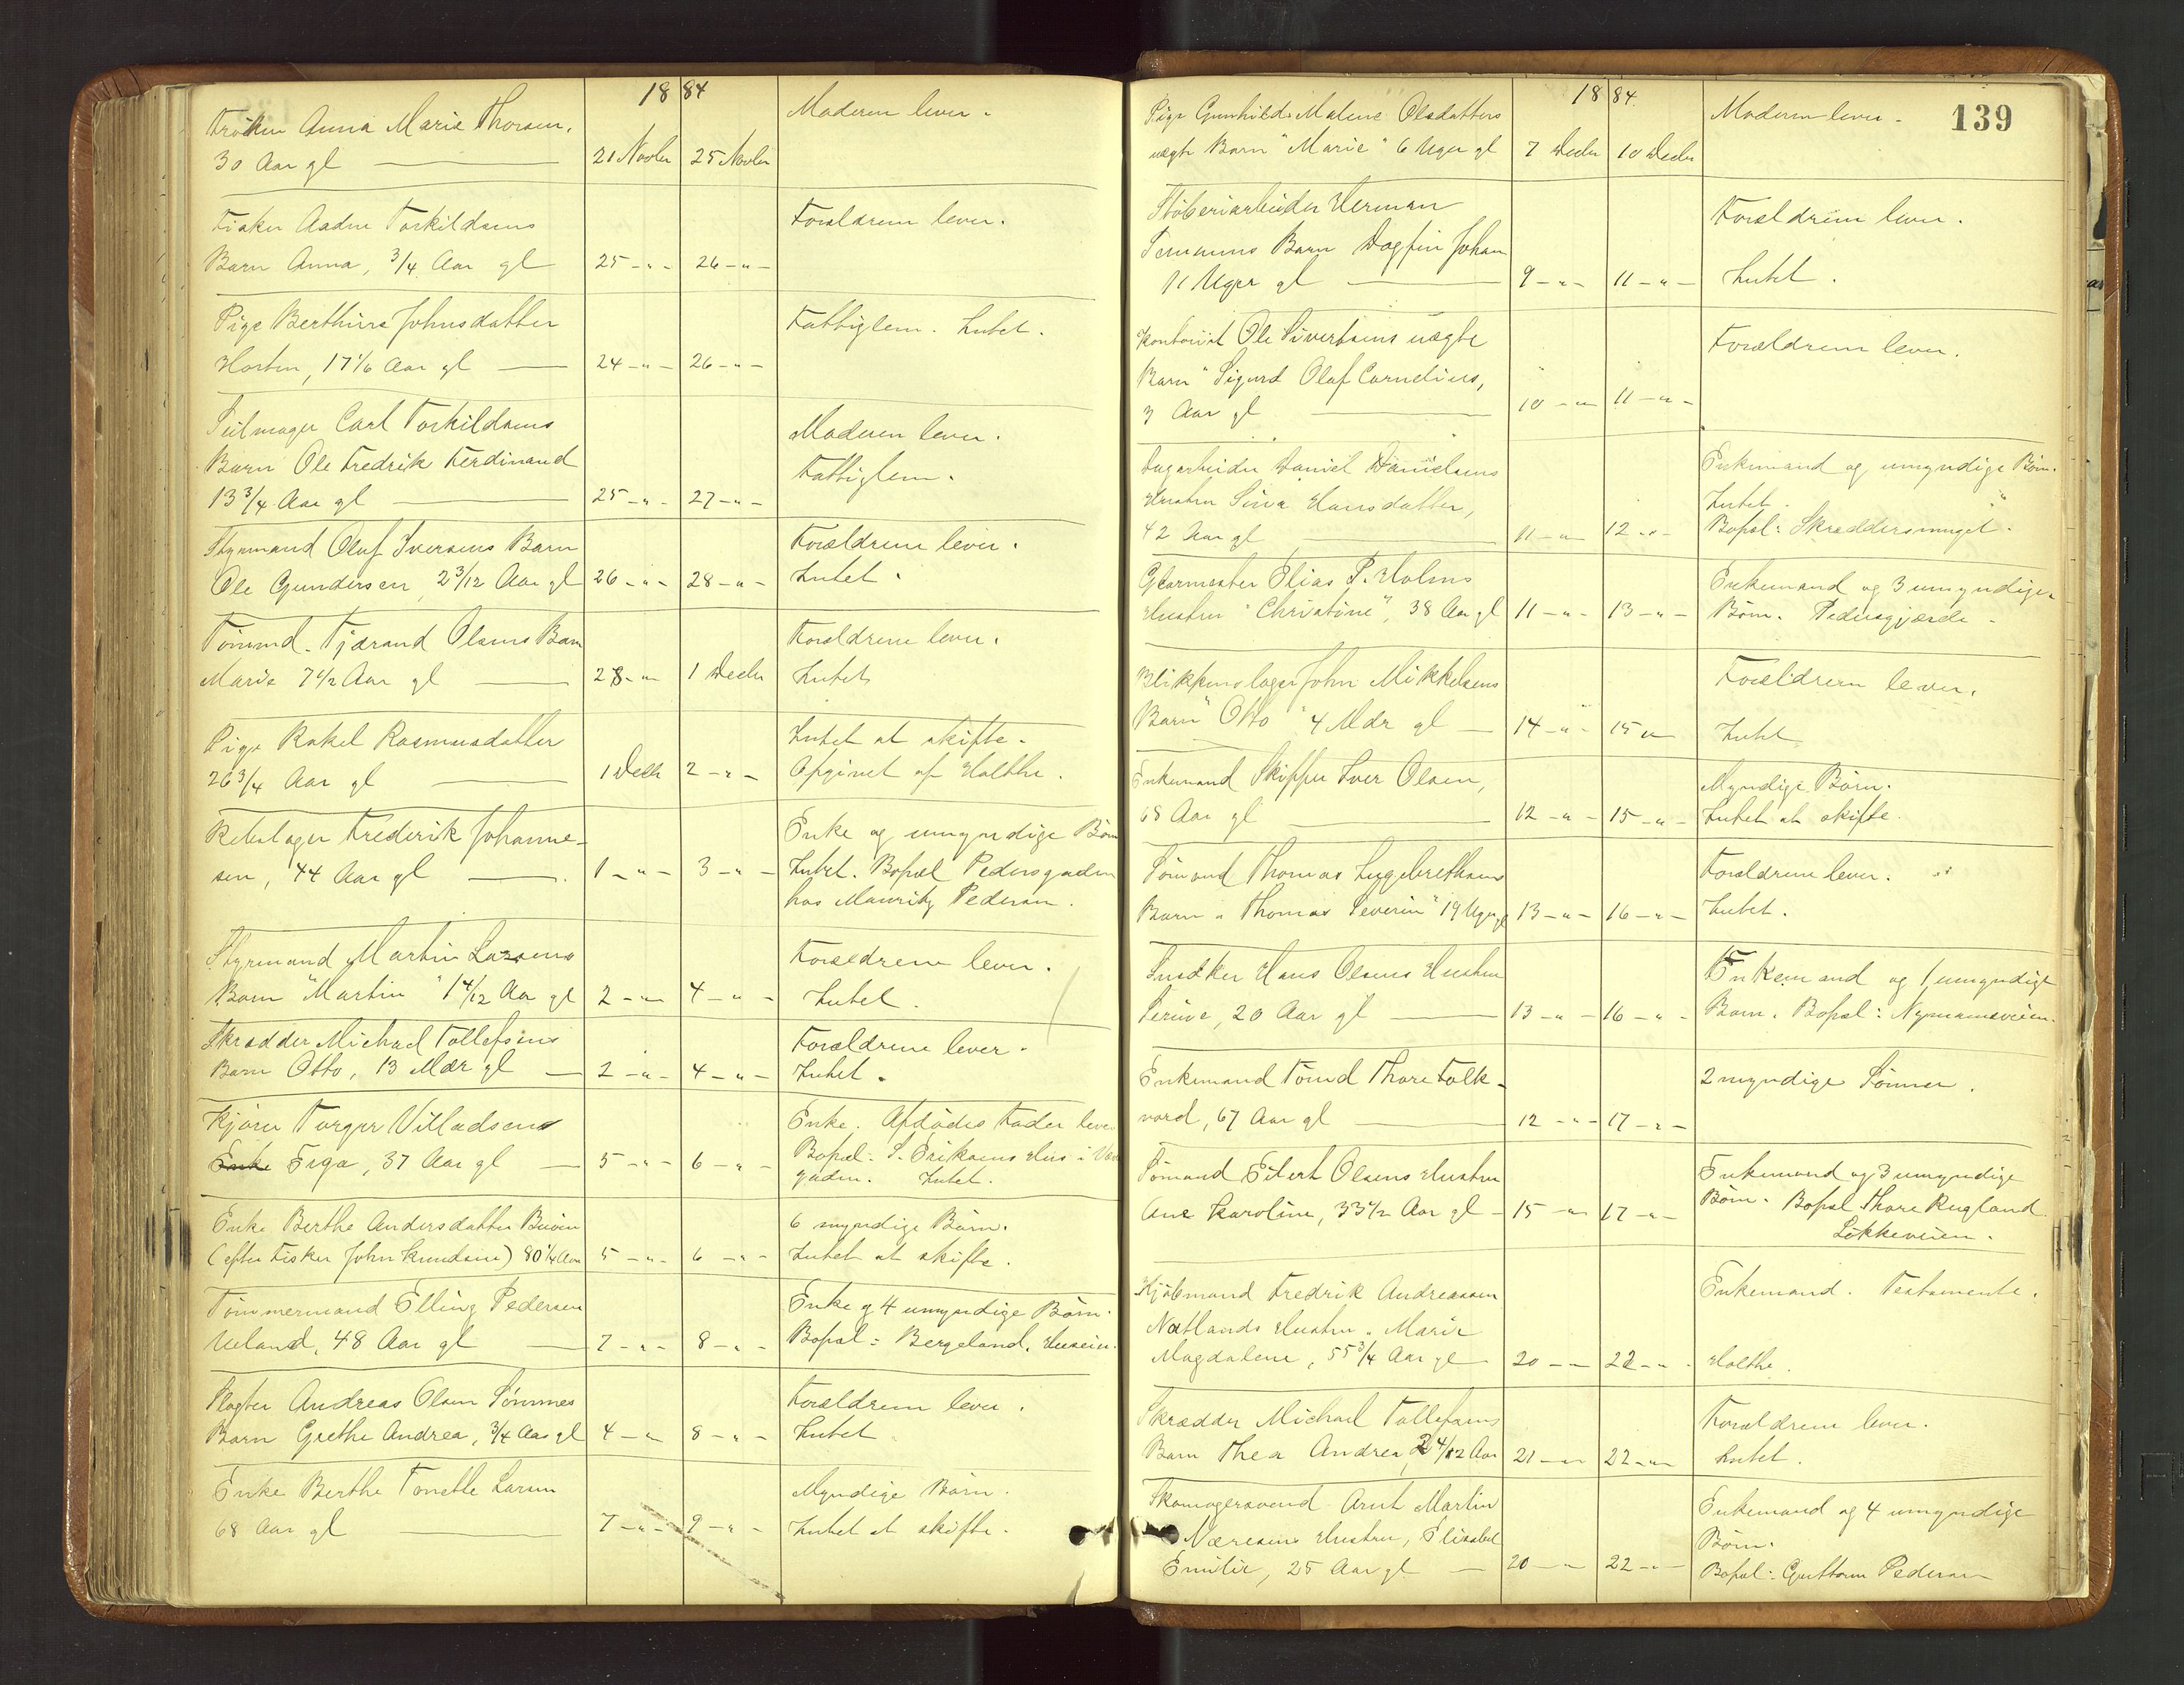 1884
Frøken Anna Marie Thorsen,
30 Aar gl — 21 Novbr 25 Novbr
Moderen lever.
Fisker Aadne Torkildsens
Barn Anna, 3/4 Aar gl 25 -"- 26 -"-
Forældrene lever.
Pige Berthine Johnsdatter
Horten, 17 1/6 Aar gl — 24 -"- 26 -"-
Fattiglem. Intet.
Seilmager Carl Torkildsens
Barn Ole Fredrik Ferdinand
13 3/4 Aar gl — 25 -"- 27 -"-
Moderen lever.
Fattiglem.
Styrmand Olaf Iversens Barn
Ole Gundersen, 2 3/12 Aar gl 26 -"- 28 -"-
Forældrene lever.
Intet.
Tømmd. Tjærand Olsens Barn
Marie 7 1/2 Aar gl — 28 -"- 1 Decbr
Forældrene lever.
Intet
Pige Rakel Rasmusdatter
26 3/4 Aar gl — 1 Decbr 2 -"-
Intet at skifte.
Opgivet af Holthe.
Rebslager Frederik Johanne-
sen, 44 Aar gl — 1 -"- 3 -"-
Enke og umyndige Børn
Intet. Bopæl Pedersgaden
hos Mauritz Pedersen.
Styrmand Martin Larsens
Barn "Martin" 1 4/12 Aar gl 2 -"- 4 -"-
Forældrene lever.
Intet.
Skrædder Michael Tollefsens
Barn Otto, 13 Mdr gl — 2 -"- 4 -"-
Forældrene lever.
Intet.
Kjører Torger Villadsens
Enke Frga, 37 Aar gl — 5 -"- 6 -"-
Enke. Afdødes Fader lever
Bopæl: S. Eriksens Hus i
gaden. Intet.
Enke Berthe Andersdatter
(efter Fisker John Knudsen) 80 1/4 Aar 5 -"- 6 -"-
6 myndige Børn.
Intet at skifte.
Tømmermand Elling Pedersen
Ueland, 48 Aar gl — 7 -"- 8 -"-
Enke og 4 umyndige Børn.
Bopæl: Bergeland, Huseier.
Slagter Andreas Olsen Sømmes
Barn Grethe Andrea, 3/4 Aar gl 4 -"- 8 -"-
Forældrene lever.
Intet
Enke Berthe Tonette Larsen
68 Aar gl — 7 -"- 9 -"-
Myndige Børn.
Intet at skifte.
139
1884
Pige Gunhild Malene Olsdatters
uægte Barn "Marie" 6 Uger gl 7 Decbr 10 Decbr
Moderen lever.
Støberiarbeider Herman
Barn Dagfin Johan
11 Uger gl — 9 -"- 11 -"-
Forældrene lever.
Intet.
Kontorist Ole Sivertsens uægte
Barn "Sigurd Olaf Cornelius,
3 Aar gl — 10 -"- 11 -"-
Forældrene lever.
Dagarbeider Daniel Danielsens
Hustru Sina Hansdatter,
42 Aar gl — 11 -"- 12 -"-
Enkemand og umyndige Børn.
Intet.
Bopæl: Skræddersmuget.
Glarmester Elias P. Holms
Hustru "Christine", 38 Aar gl 11 -"- 13 -"-
Enkemand og 3 umyndige
Børn. Pedersgjærde.
Blikkenslager John Mikkelsens
Barn "Otto" 4 Mdr gl — 14 -"- 15 "
Forældrene lever.
Intet
Enkemand Skipper Iver Olsen,
68 Aar gl — 12 -"- 15 -"-
Myndige Børn.
Intet at skifte.
Sømand Thomas Ingebrethsens
Barn "Thomas Severin" 19 Uger gl 13 -"- 16 -"-
Forældrene lever.
Intet.
Snedker Hans Olsens Hustru
Serine, 20 Aar gl — 13 -"- 16 -"-
Enkemand og 1 umyndigt
Barn. Bopæl: Nymannsveien.
Enkemand Tømd Thore Folk-
vord, 67 Aar gl — 12 -"- 17 -"-
2 myndige Sønner.
Sømand Eilert Olsens Hustru
Ane Karoline, 33 1/2 Aar gl - 15 -"- 17 -"-
Enkemand og 3 umyndige
Børn. Bopæl Thore Rugland
Løkkeveien.
Kjøbmand Fredrik Andreassen
Natlands Hustru. Marie
Magdalene, 55 3/4 Aar gl 20 -"- 22 -"-
Enkemand. Testamente.
Holthe.
Skrædder Michael Tollefsens
Barn Thea Andrea, 2 4/12 Aar 21 -"- 22 -"-
Forældrene lever.
Intet.
Skomagersvend Arnt Martin
Næresens Hustru, Elisabet
Emilie, 25 Aar gl — 20 -"- 22 -"-
Enkemand og 4 umyndige
Børn.
Bopæl: Guttorm Pedersen